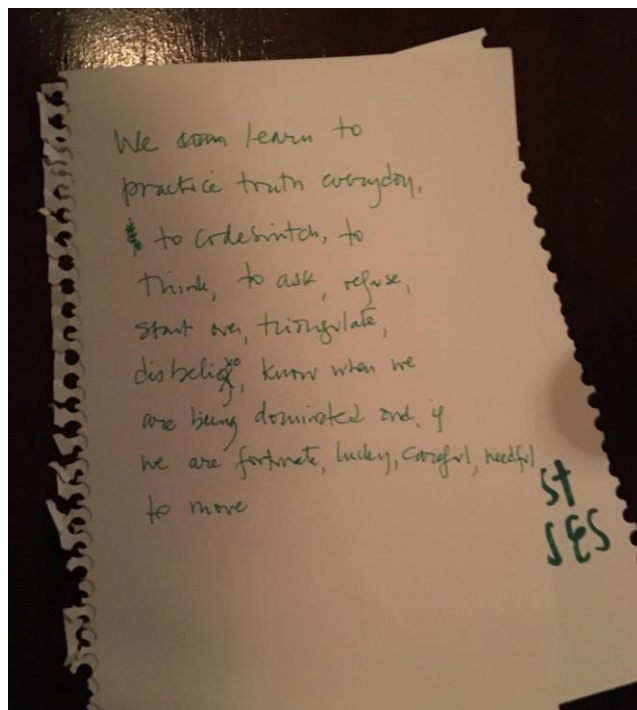 We learn to
practice truth everyday,
to codeswitch, to
think, to ask, refuse,
start over, triangulate,
disbelieve, know when we
are being dominated and, if
we are fortunate, lucky, careful, needful
to move
st
SES